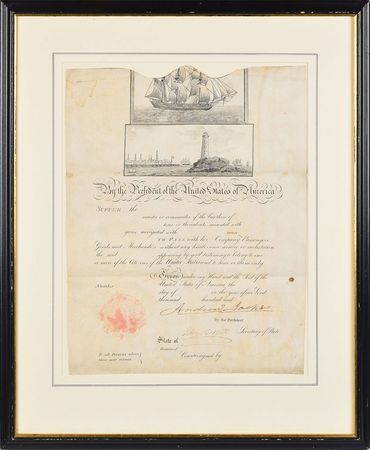 By the President of the United States of America
SUFFER the
master or commander of the burthen of
tons or thereabouts mounted with
guns navigated with men
TO PASS with her Company Passengers
Goods and Merchandize without any hindrance seizure or molestation
the said appearing by good testimony to belong to one
or more of the Citizens of the United States and to him or them only
Given under my Hand and the Seal of the
Number United States of America the
day of in the year of our Lord
thousand hundred and
Andrew Jackson
By the President
Secretary of State
State of
District of
Countersigned by
To all Persons whom
these may concern